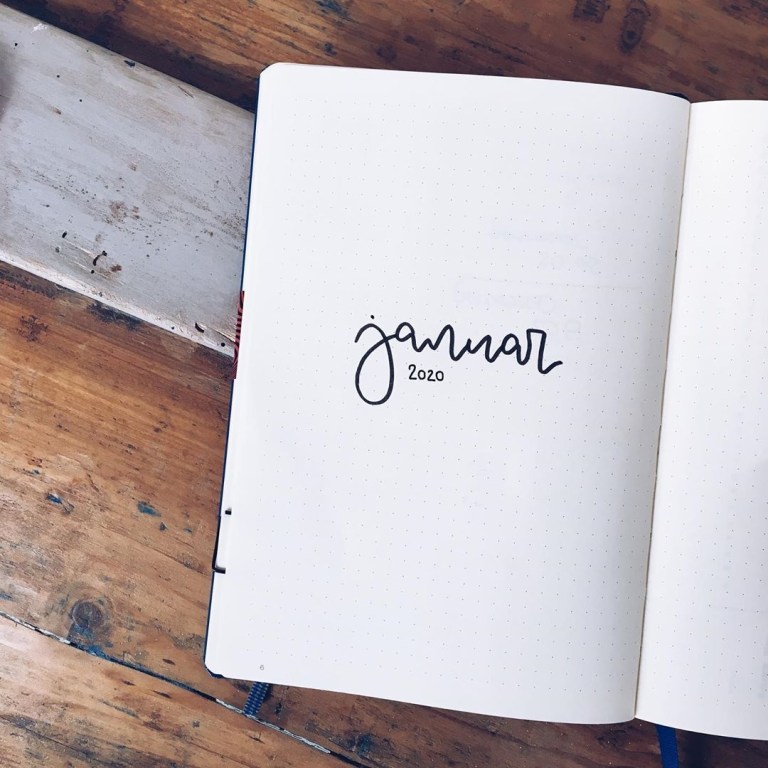 januar
2020
6